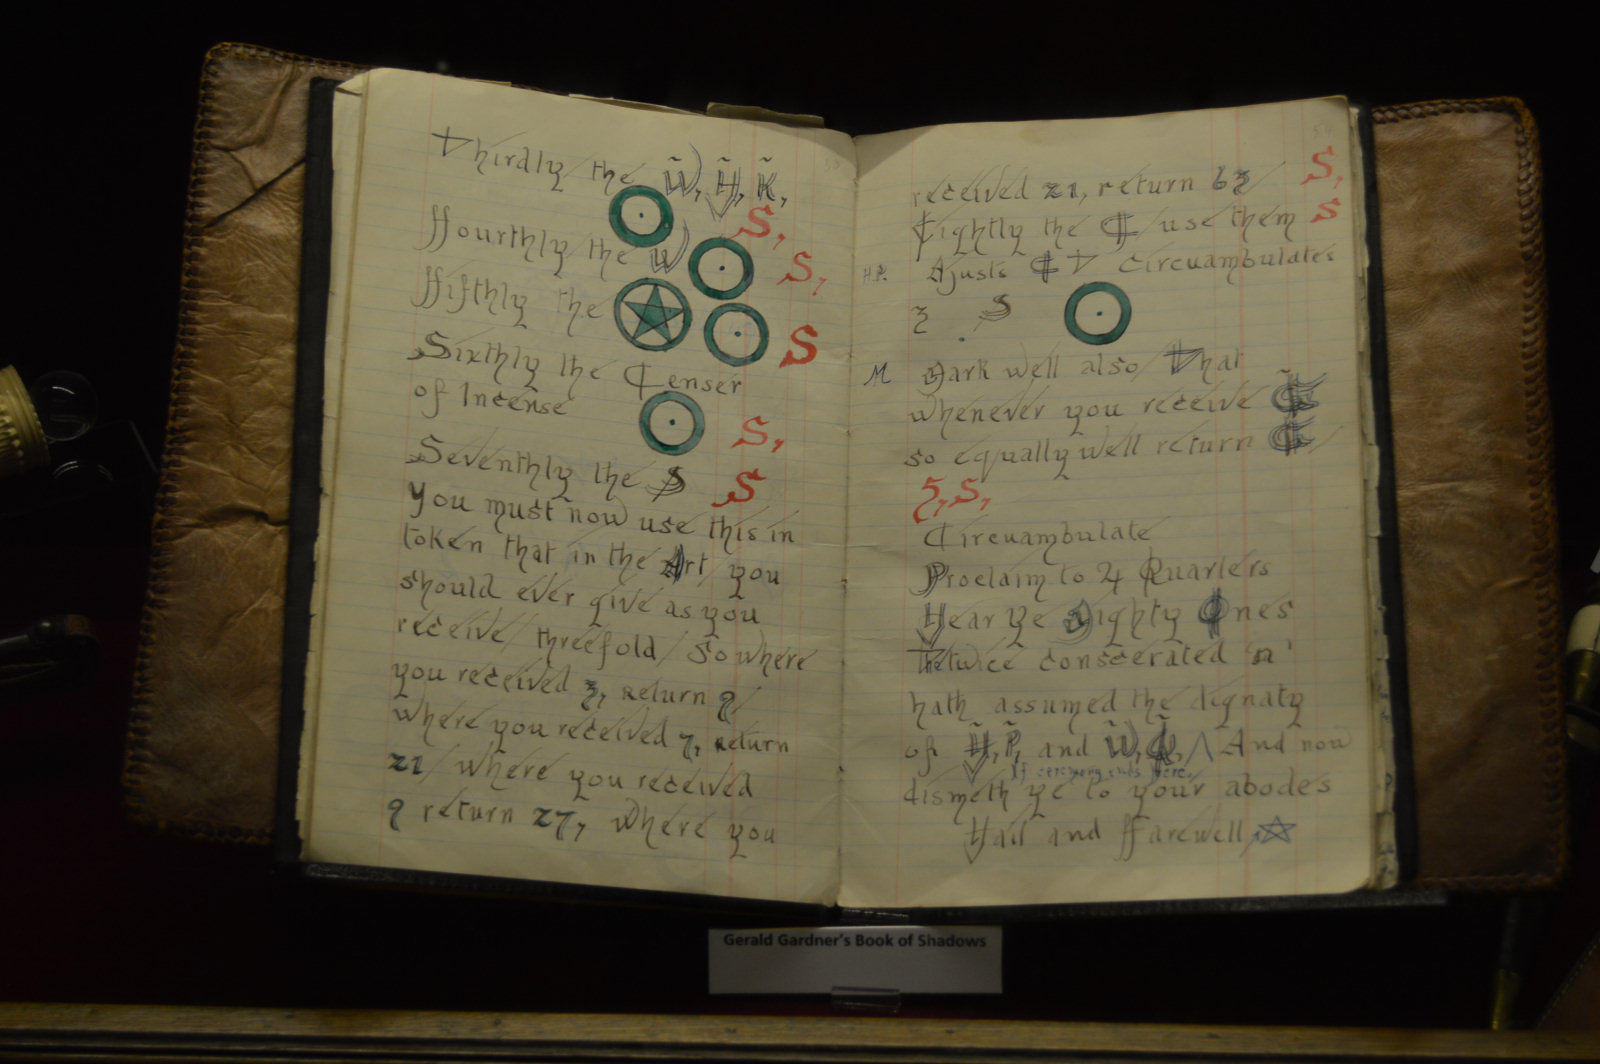 Thirdly the W̃, H̃, K̃,
S,
ffourthly the W
S,
ffifthly the
S
Sixthly the Censer
of Incense
S,
Seventhly the S
S
you must now use this in
token that in the Art you
should ever give as you
receive threefold so where
you received 3, return 9
where you received 7, return
21 where you received
9 return 27, where you
received 21, return 63
S,
Eightly the C use them
S
H.P. Ajusts C T Circuambulates
3 S
M Mark well also That
whenever you receive
so equally well return
S, S,
Circuambulate
Proclaim to 4 Quarters
Hear Ye Mighty Ones
The twice conscerated 'n'
hath assumed the dignaty
of H̃, P̃, and W̃, Q̃, And now
If ceremony ends here.
dismeth ye to your abodes
Hail and ffarewell
Gerald Gardner's Book of Shadows